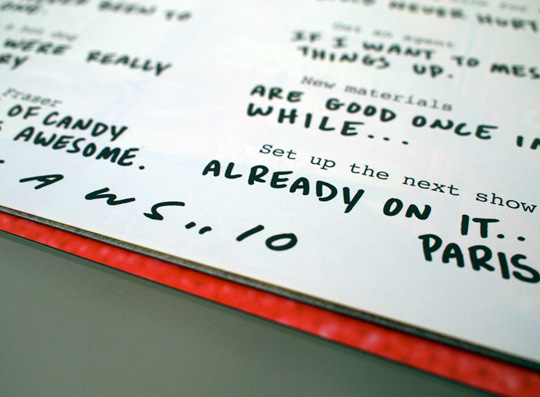 BEEN TO
WERE REALLY
Fraser
OF CANDY
AWESOME.
AWS..10
NEVER HURT
Get an agent
IF I WANT TO MES
THINGS UP.
New materials
ARE GOOD ONCE IN
WHILE...
Set up the next show
ALREADY ON IT..
PARIS